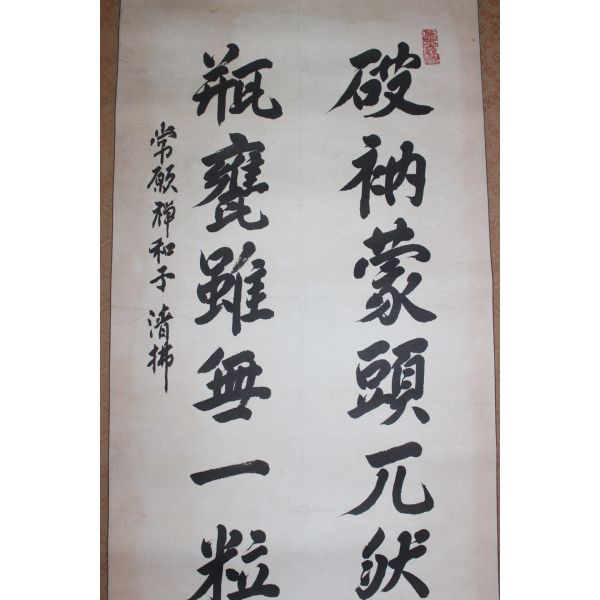 破衲蒙頭兀然
瓶甕雖無一粒
常願禅和子 清拂